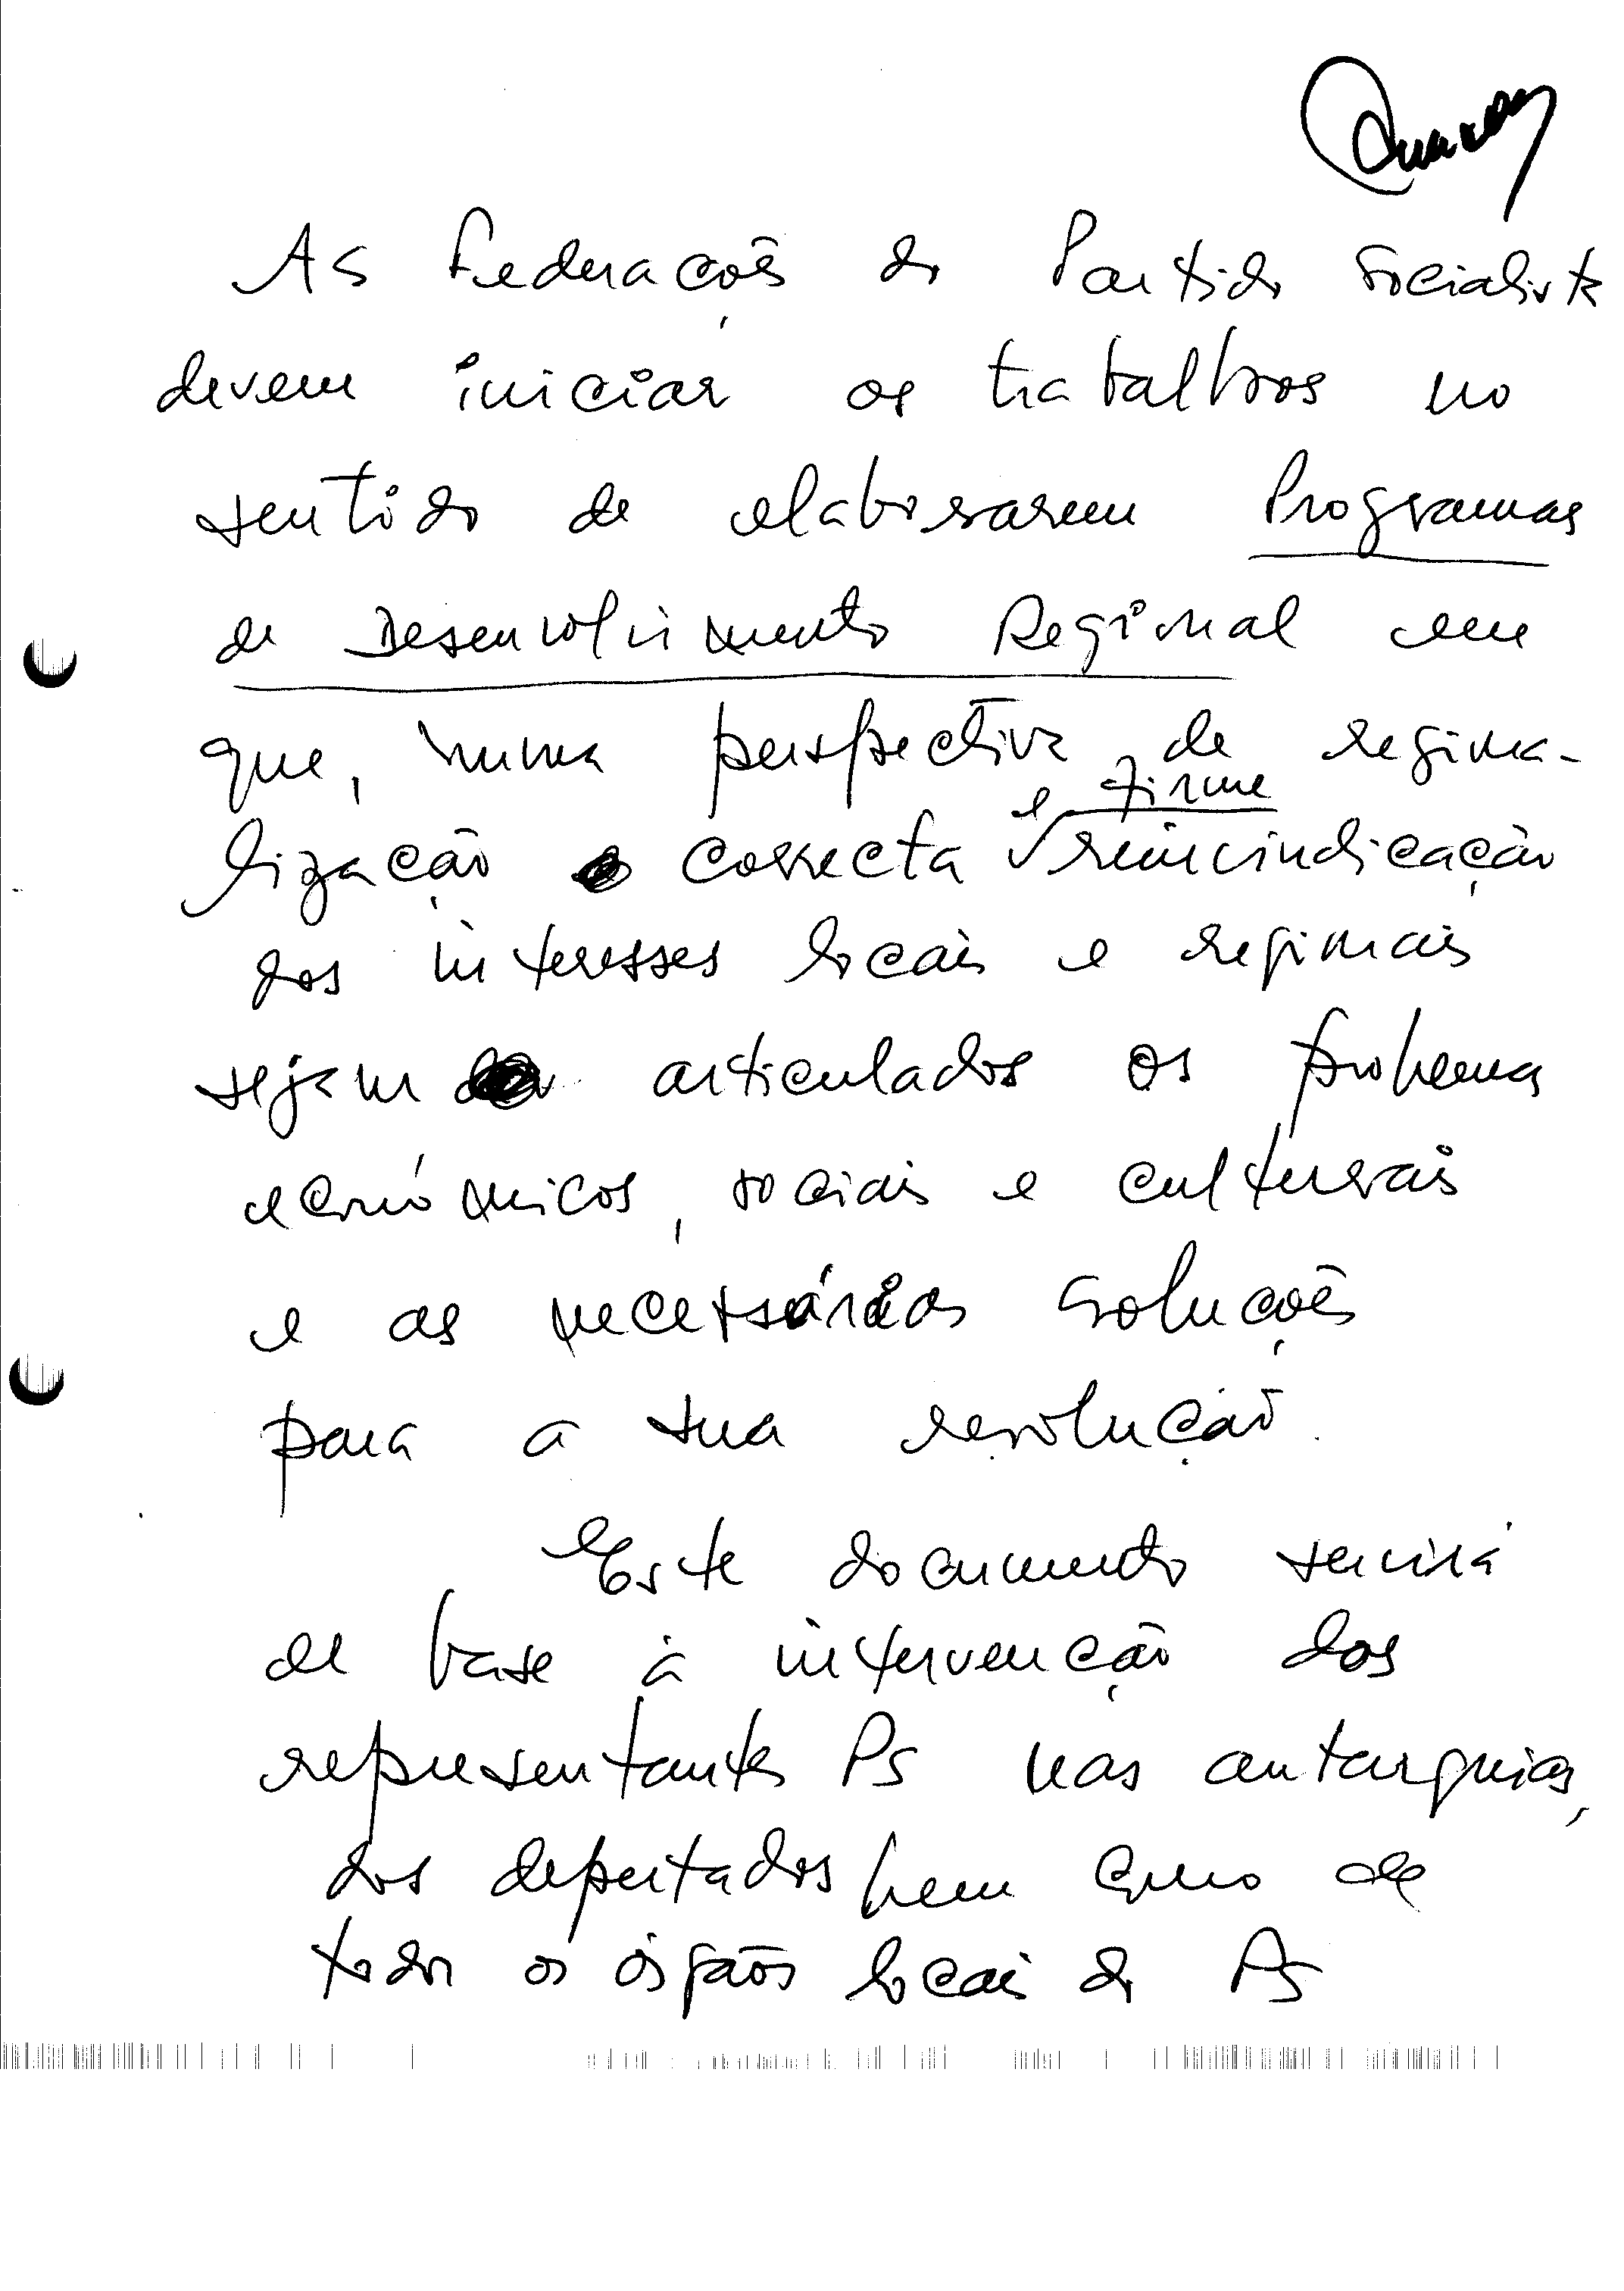 As Federações do Partido Socialista
devem iniciar os trabalhos no
sentido de elaborarem Programas
de Desenvolvimento Regional em
que, numa perspectiva de regiona-
e firme
lização correcta reinvindicação
dos interesses locais e regionais
sejam articulados os problemas
económicos, sociais e culturais
e as necessárias soluções
para a sua resolução.
Este documento servirá
de base à intervenção dos
representantes PS nas autarquias,
dos deputados bem como de
todos os órgãos locais do PS